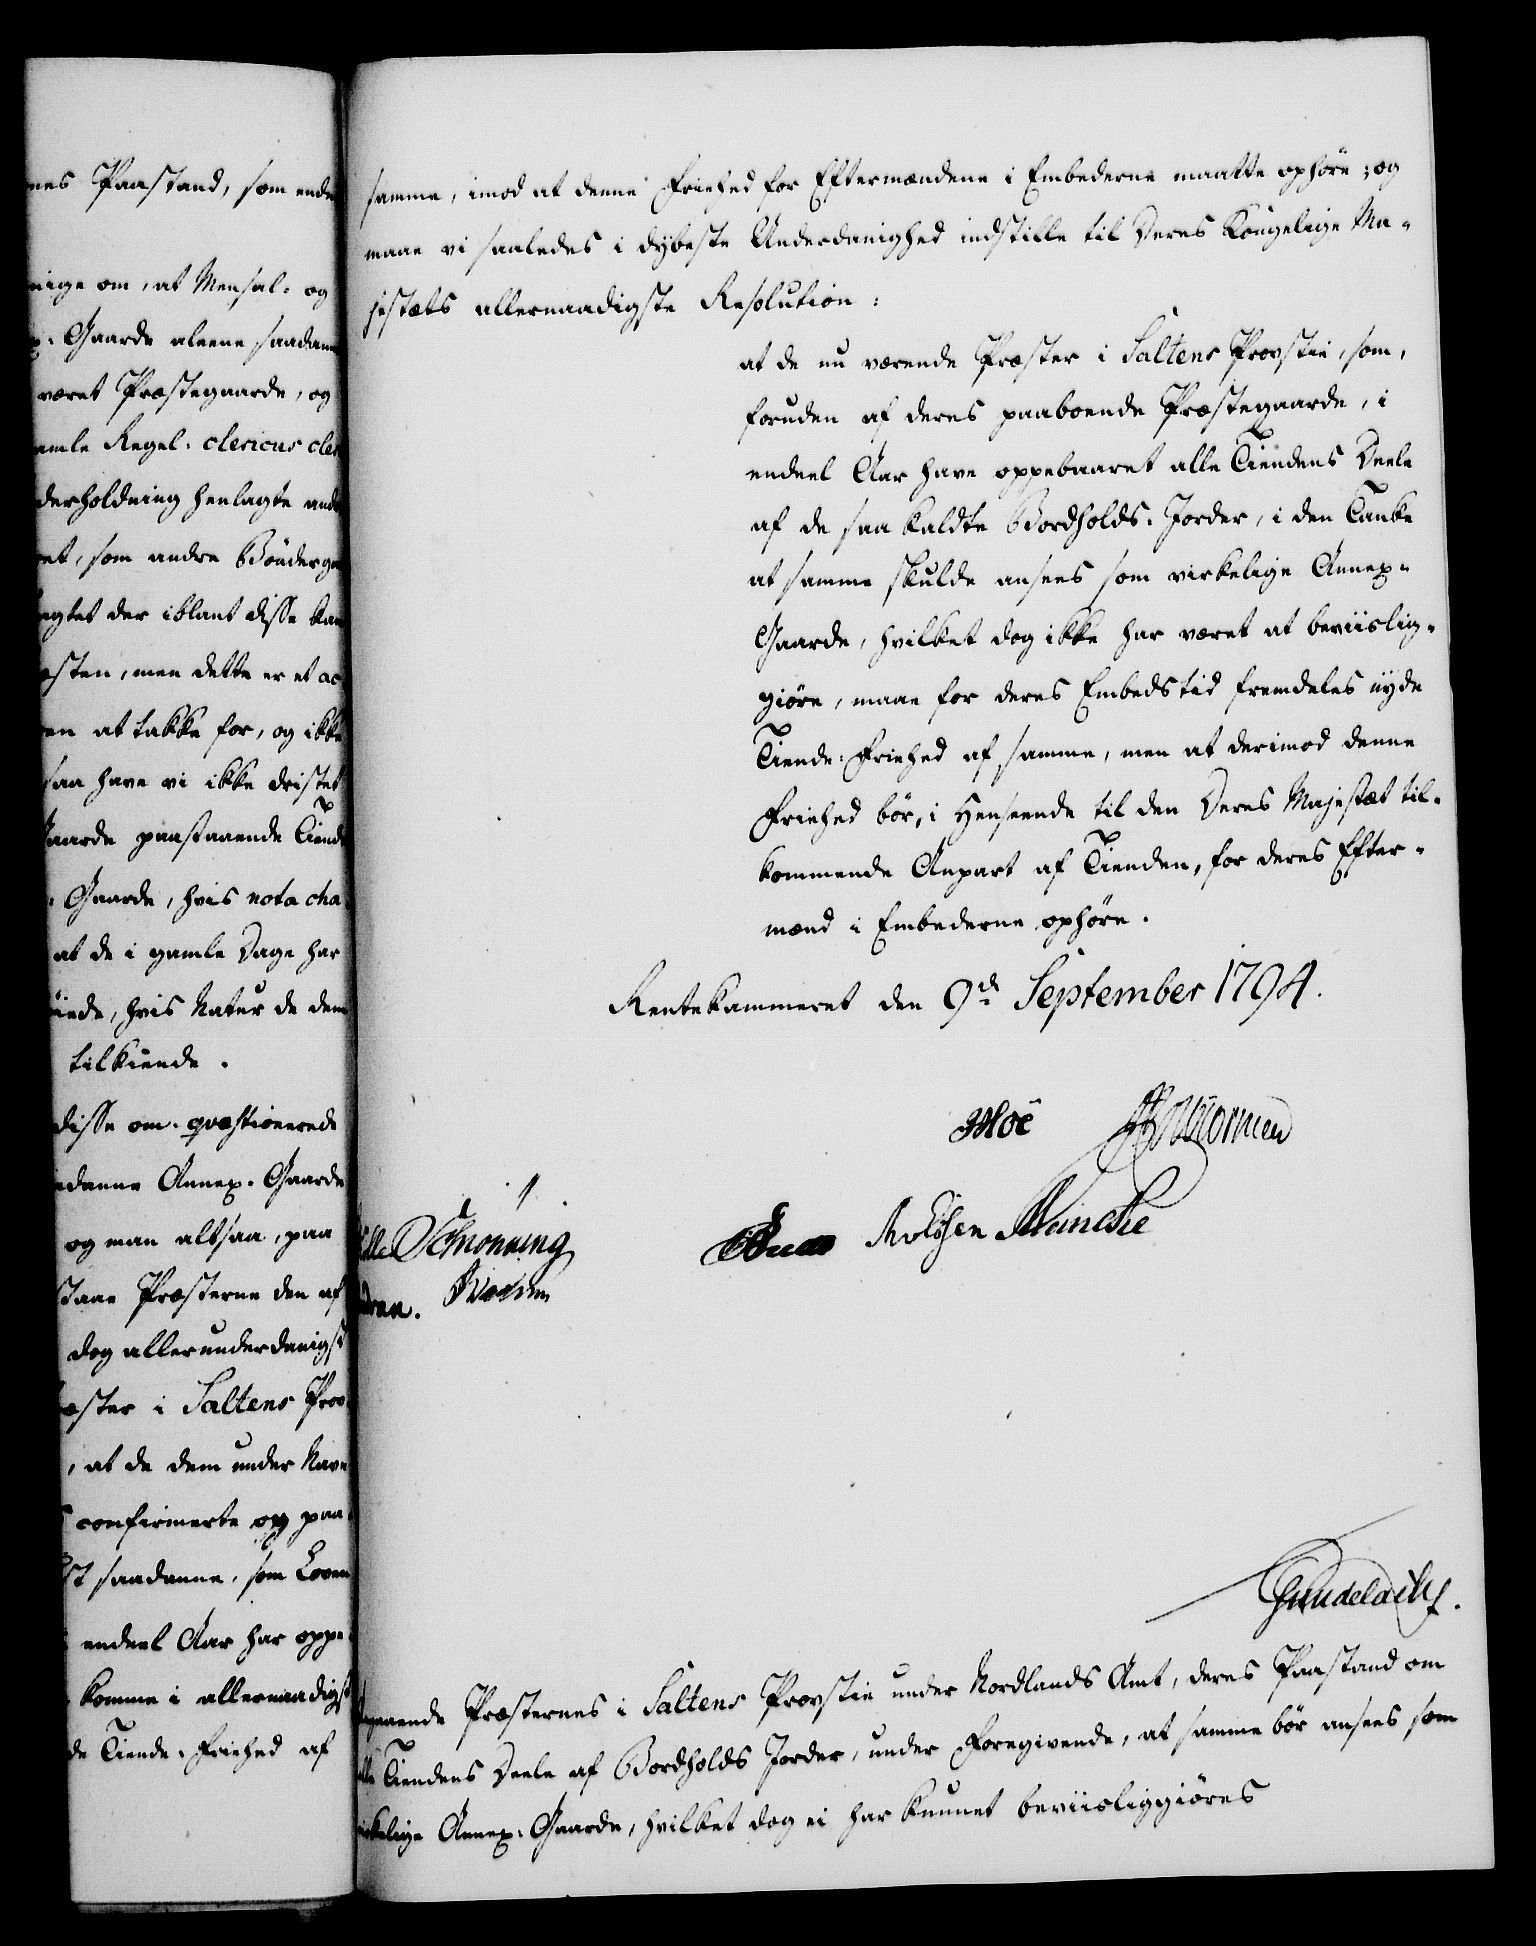 nes Paastand, som ende
nige om, at Mensal- og
Gaarde aleene saadanne
været Præstegaarde, og
amle Regel. clericus cler
derholdning henlagte and
et, som andre Bönderga
agtet der iblant disse kan
sten, men dette er et ac
en at takke for, og ikke
saa have vi ikke dristet
Gaarde paastaaende Tiende
Gaarde, hvis nota cha
at de i gamle Dage har
iede, hvis Natur de dem
tilkiende.
disse om-qvæstionerede
adanne Annex-Gaarde
og man altsaa, paa
staae Præsterne den af
dog allerunderdanigst
æster i Saltens Prov
, at de dem under Navn
confirmerte og paa
st saadanne, som Loven
endeel Aar har oppe
komme i allernaadigst
de Tiende-Friehed af
samme, imod at denne Friehed for Eftermændene i Embederne maatte ophöre; og
maae vi saaledes i dybeste Underdanighed indstille til Deres Kongelige Ma-
jestæts allernaadigste Resolution:
at de nu værende Præster i Saltens Provstie, som,
foruden af deres paaboende Præstegaarde, i
endeel Aar have oppebaaret alle Tiendens Deele
af de saa kaldte Bordholds-Jorder, i den Tanke
at samme skulde ansees som virkelige Annex-
Gaarde, hvilket dog ikke har været at beviislig-
giöre, maae for deres Embedstid fremdeles nyde
Tiende-Friehed af samme, men at derimod denne
Friehed bör, i Henseende til den Deres Majestæt til-
kommende Anpart af Tienden, for deres Efter-
mænd i Embederne ophöre.
Rentekammeret den 9de September 1794.
Moë Wormen
Schiönning Meincke
Gundelach.
gaaende Præsternes i Saltens Provstie under Nordlands Amt, deres Paastand om
alle Tiendens Deele af Bordholds Jorder, under Foregivende, at samme bör ansees som
virkelige Annex-Gaarde, hvilket dog ei har kunnet beviisliggiöres